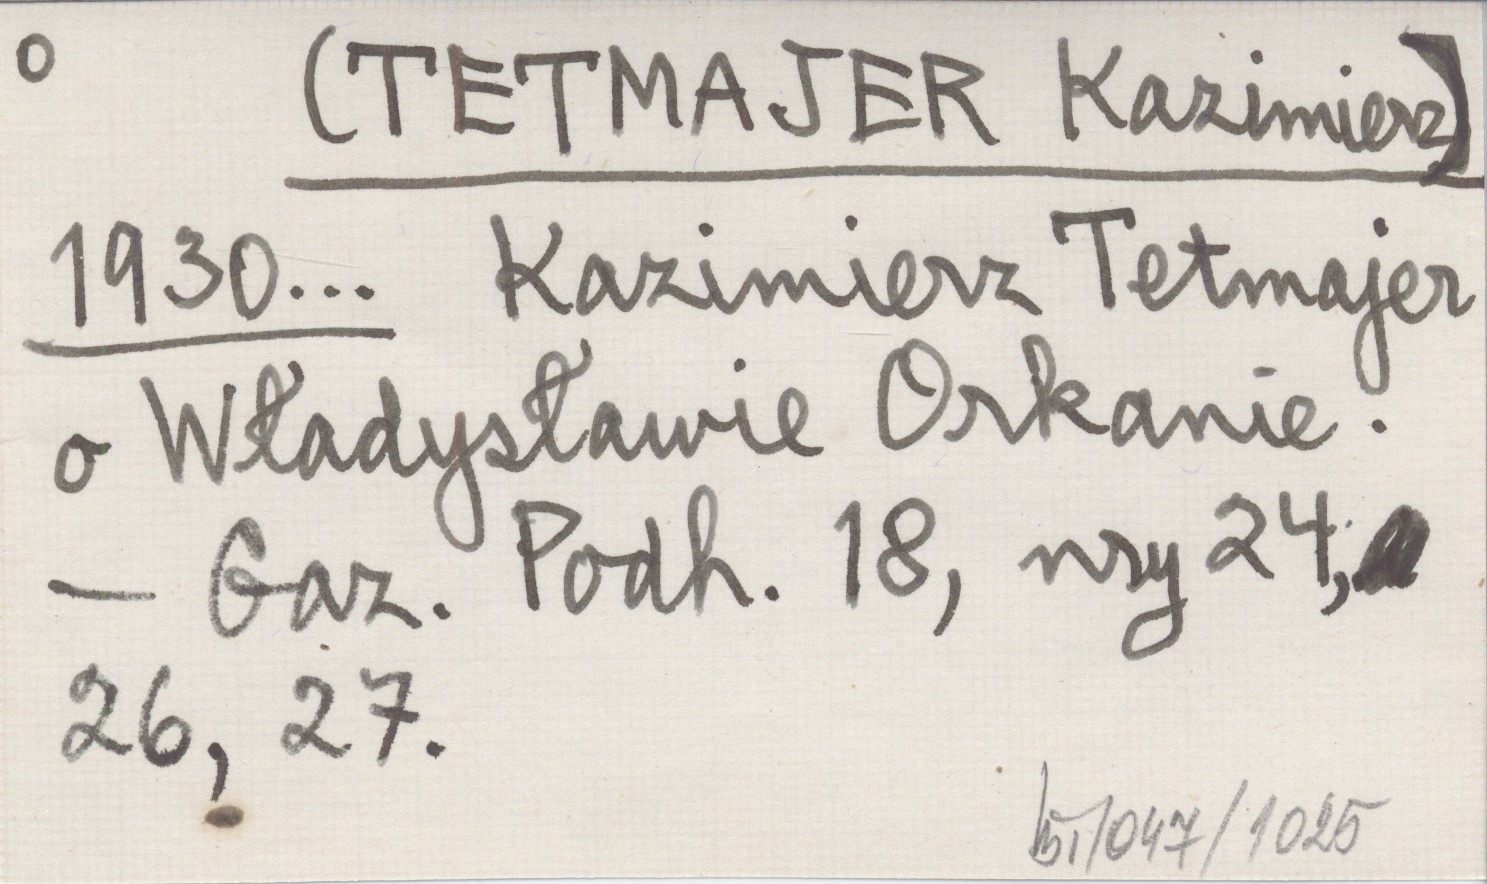 o (TETMAJER Kazimierz)
1930... Kazimierz Tetmajer
o Władysławie Orkanie.
— Gaz. Podh. 18, nry 24,
26, 27.
/047/1025